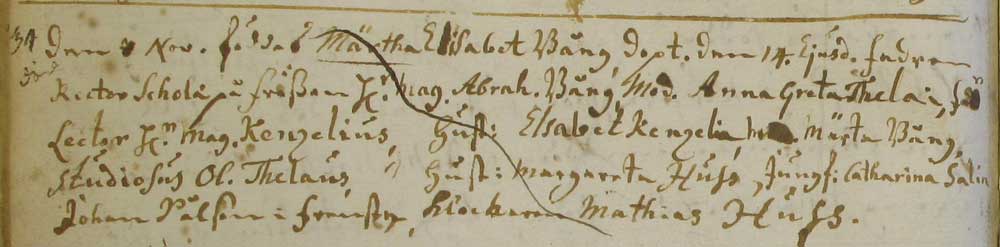 34 dem 8 Nov. föddes Märtha Elisabet Bång, döpt. dem 14. Ejusd. fadren
Rector Scholæ Hr. Mag. Abrah. Bång, Mod. Anna Greta Thelaia,
Lector Hr. Mag. Kenzelius, Hust: Elsabet Kenzelia, Märta Bång,
Studiosus Ol. Thelaus, Hust: Margareta Huss, Jungf: Catharina Salin
Johan Pålson i Klockaren Mathias Huss.